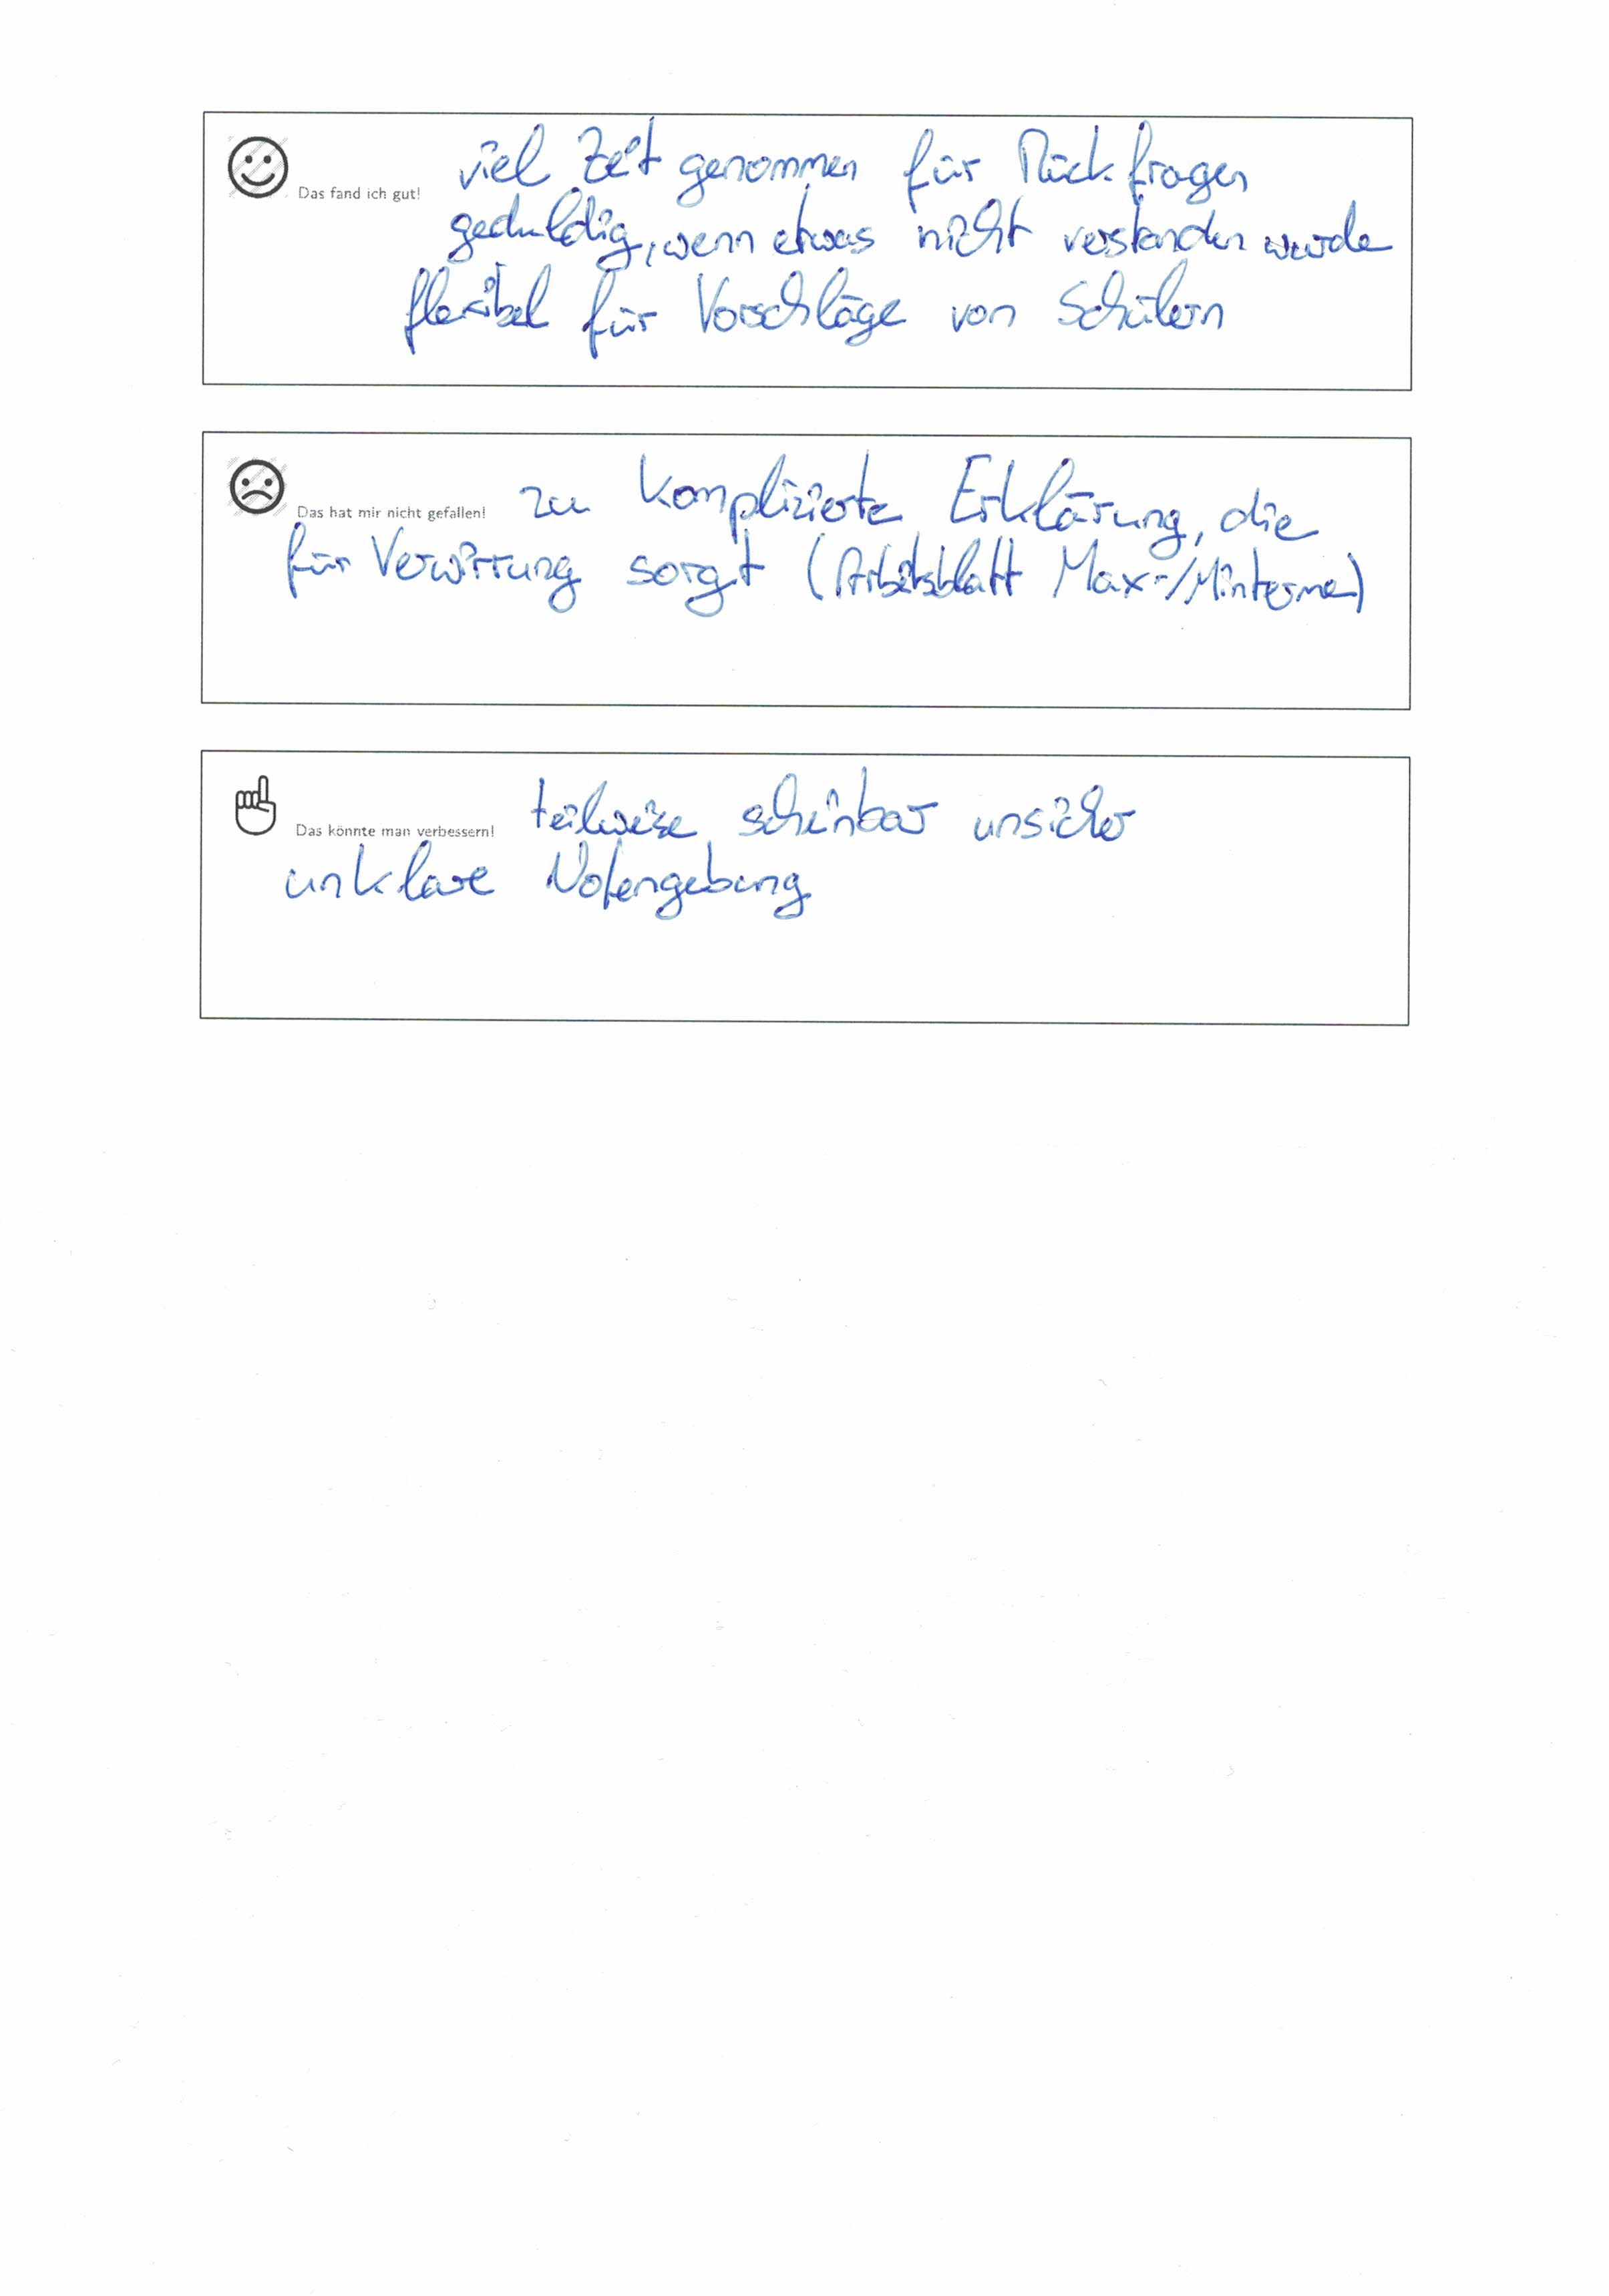 Das fand ich gut! viel Zeit genommen für Rückfragen
geduldig, wenn etwas nicht verstanden wurde
flexibel für Vorschläge von Schülern
Das hat mir nicht gefallen! zu komplizierte Erklärung, die
für Verwirrung sorgt (Arbeitsblatt Max-/Minterme)
Das könnte man verbessern! teilweise scheinbar unsicher
unklare Notengebung